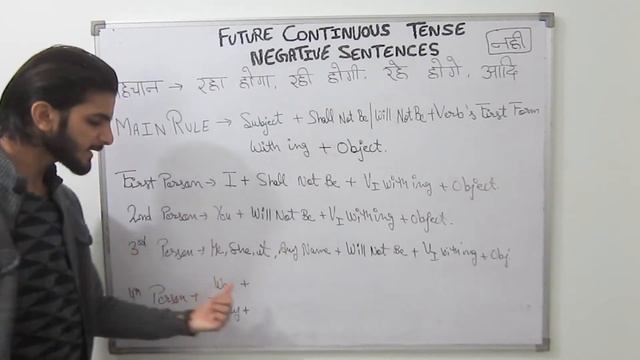 FUTURE CONTINUOUS TENSE
NEGATIVE SENTENCES
नहीं
पहचान → रहा होगा, रही होगी, रहे होंगे, आदि
MAIN RULE → Subject + Shall Not Be/Will Not Be + Verb's First Form
With ing + Object.
First Person → I + Shall Not Be + V1 With ing + Object.
2nd Person → You + Will Not Be + V1 With ing + Object.
3rd Person → He, She, it, Any Name + Will Not Be + V1 with ing + Obj
4th Person → We +
+